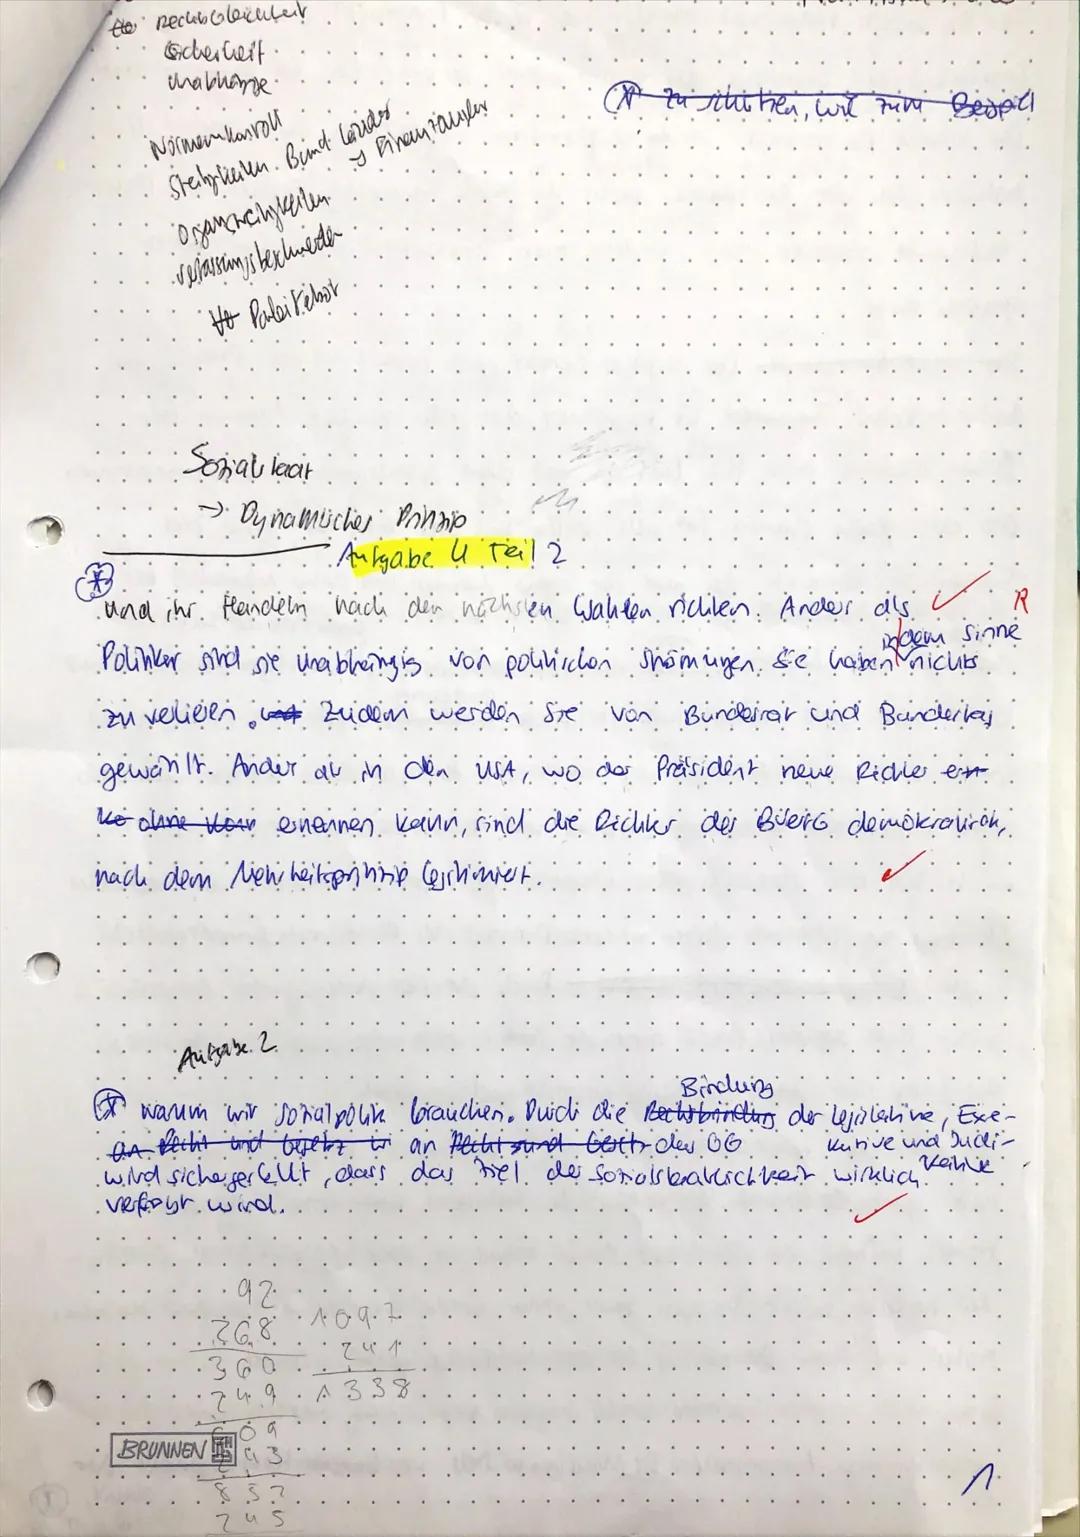 Rechtsgleichheit
Sicherheit
unabhänge
zu schützen, wie zum Beispiel
Normenkontroll
Streitigkeiten Bund Länder
→ Finanz
Organstreitigkeiten
Verfassungsbeschwerde
Sozialstaat
→ Dynamisches Prinzip
Aufgabe 4 Teil 2
und ihr Handeln nach den nächsten Wahlen richten. Anders als
R
in dem Sinne
Politiker sind sie unabhängig von politischen Strömungen. Sie haben nichts
zu verlieren. und Zudem werden Sie von Bundesrat und Bundestag
gewählt. Anders als in den USA, wo der Präsident neue Richter
ohne ernennen kann, sind die Richter des BVerfG demokratisch,
nach dem Mehrheitsprinzip legitimiert.
Aufgabe 2
Bindung
warum wir Sozialpolitik brauchen. Durch die Rechtsbindung der Legislative, Exe-
an Recht und Gesetz an Recht und Gesetz des GG kutive und Judi-
kative
wird sichergestellt, dass das Ziel der Sozialstaatlichkeit wirklich
verfolgt wird.
92
268 1097
241
360 1338
249
609
BRUNNEN 243
852
245
1